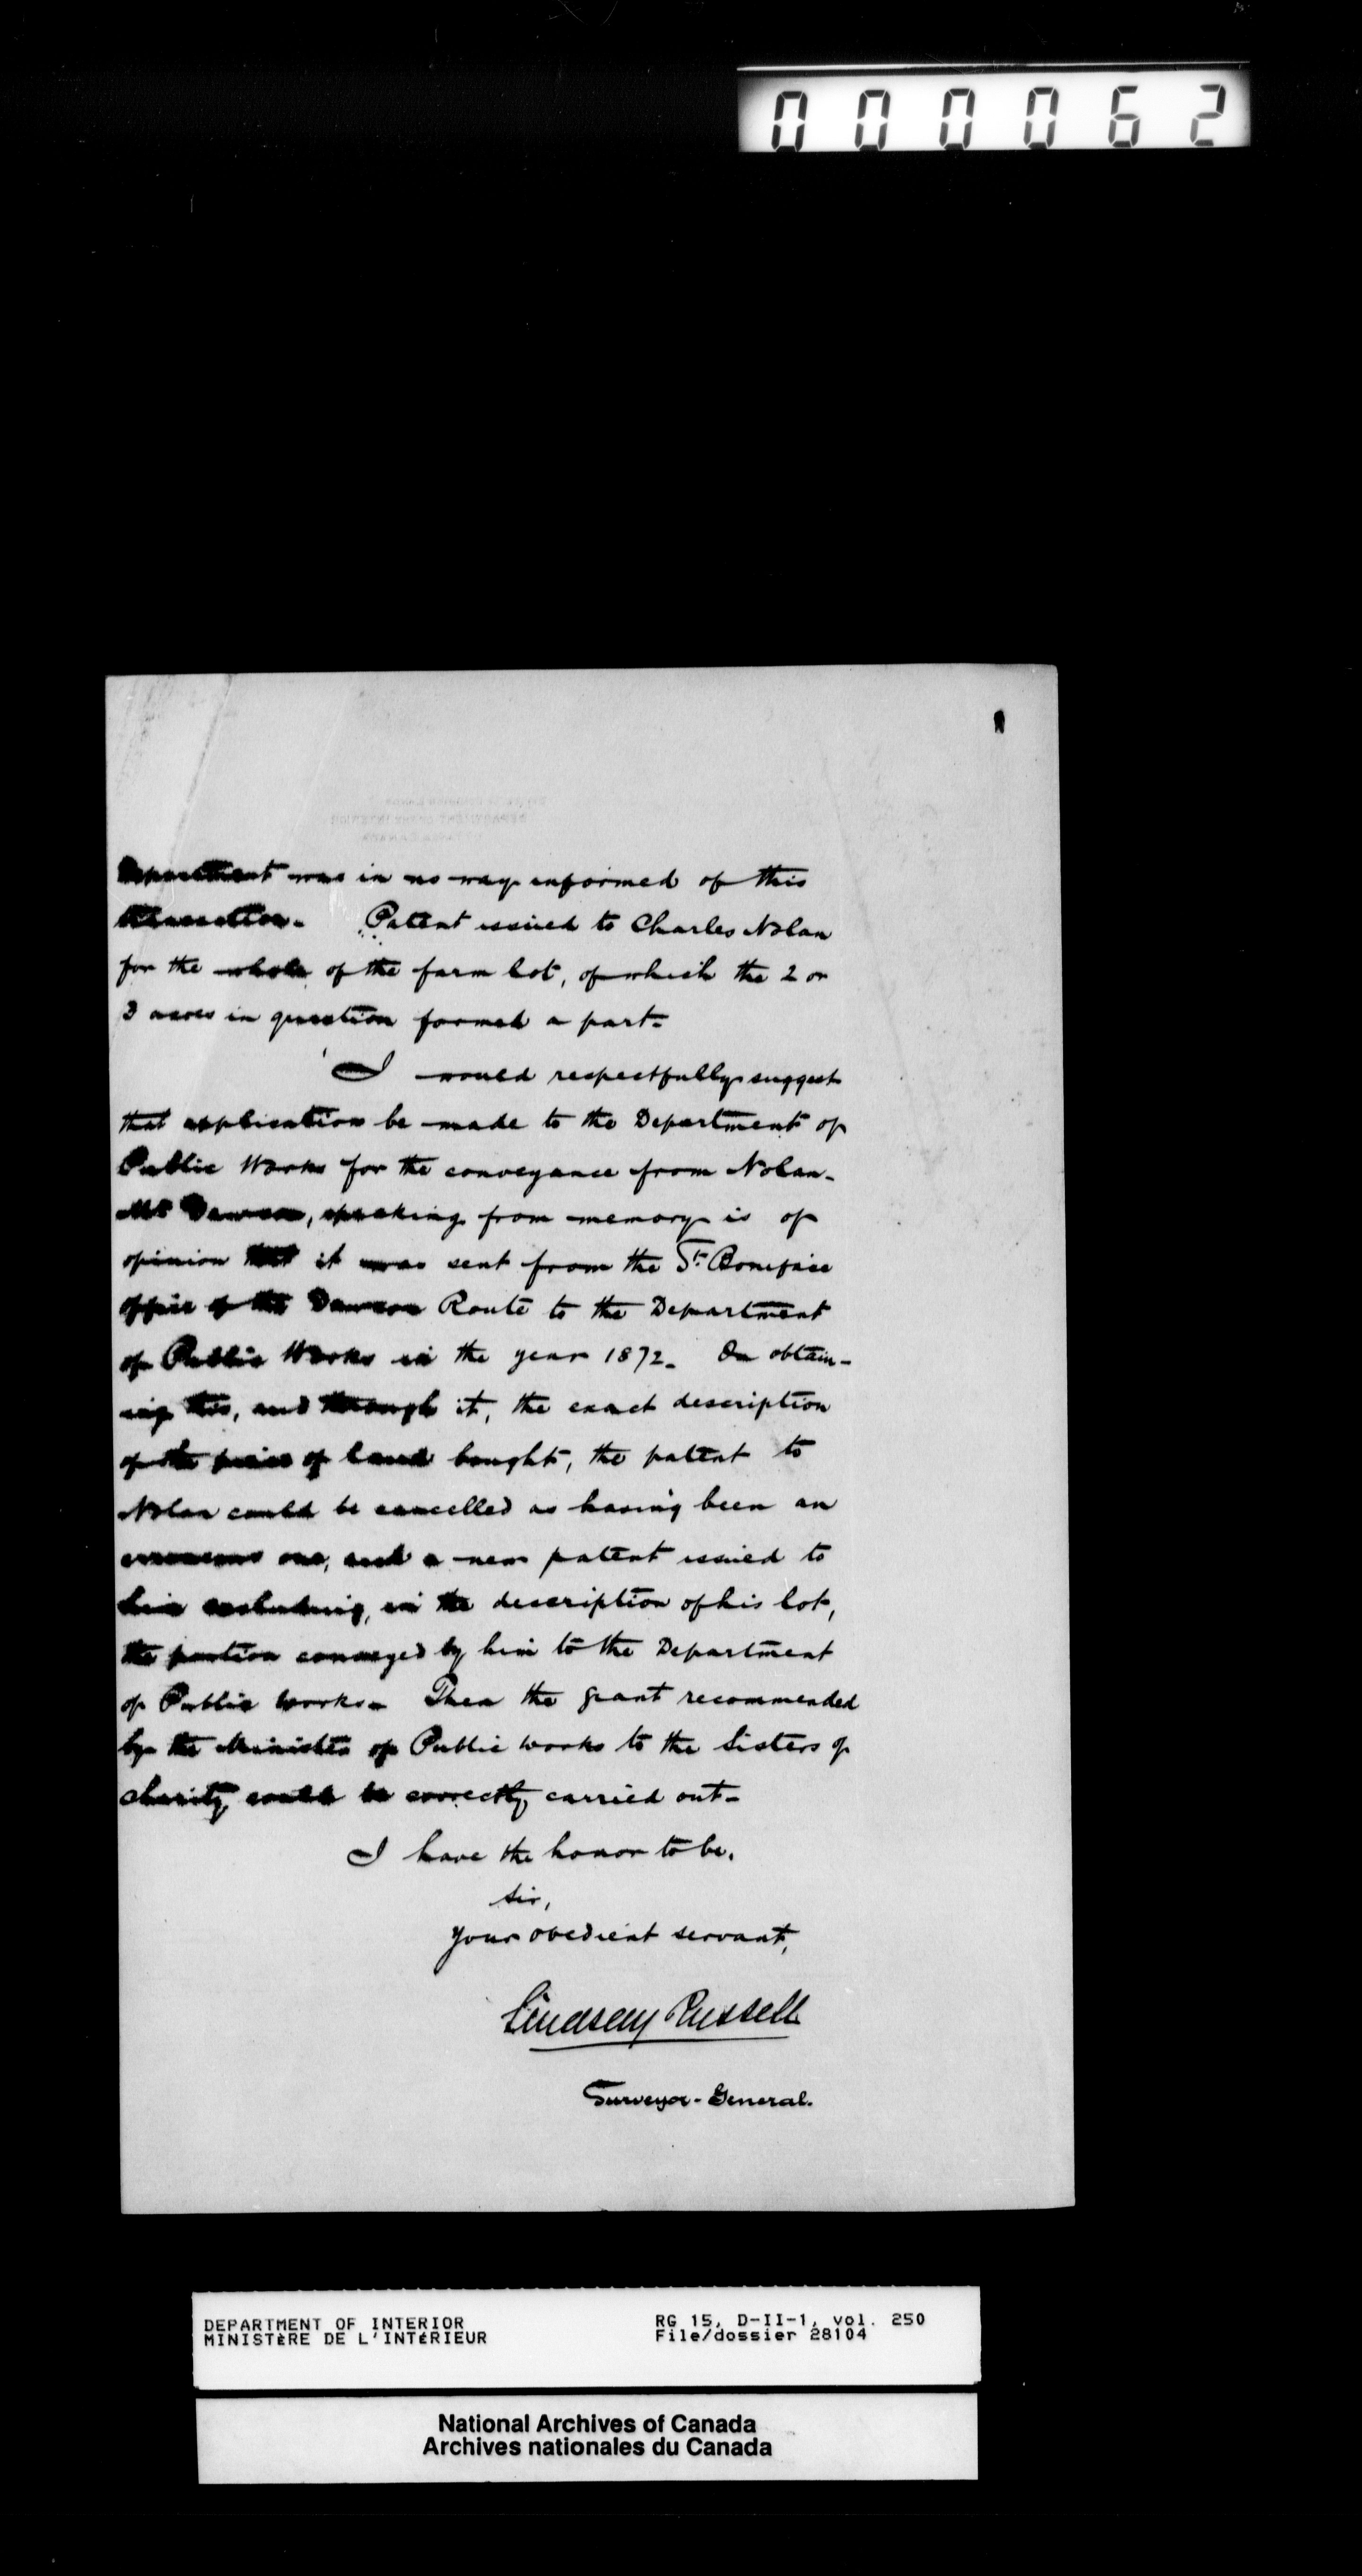 000062
Department was in no way informed of this
transaction. Patent issued to Charles Nolan
for the whole of the farm lot, of which the 2 or
3 acres in question formed a part.
I would respectfully suggest
that application be made to the Department of
Public Works for the conveyance from Nolan.
Mr Dawson, speaking from memory is of
opinion that it was sent from the St. Boniface
office of the Dawson Route to the Department
of Public Works in the year 1872. On obtain-
ing this, and through it, the exact description
of the piece of land bought, the patent to
Nolan could be cancelled as having been an
erroneous one, and a new patent issued to
him excluding, in the description of his lot,
the portion conveyed by him to the Department
of Public Works. Then the grant recommended
by the Minister of Public Works to the Sisters of
Charity, could be correctly carried out.
I have the honor to be,
Sir,
Your obedient servant,
Lindsay Russell
Surveyor-General.
DEPARTMENT OF INTERIOR RG 15, D-II-1, vol. 250
MINISTÈRE DE L'INTÉRIEUR File/dossier 28104
National Archives of Canada
Archives nationales du Canada